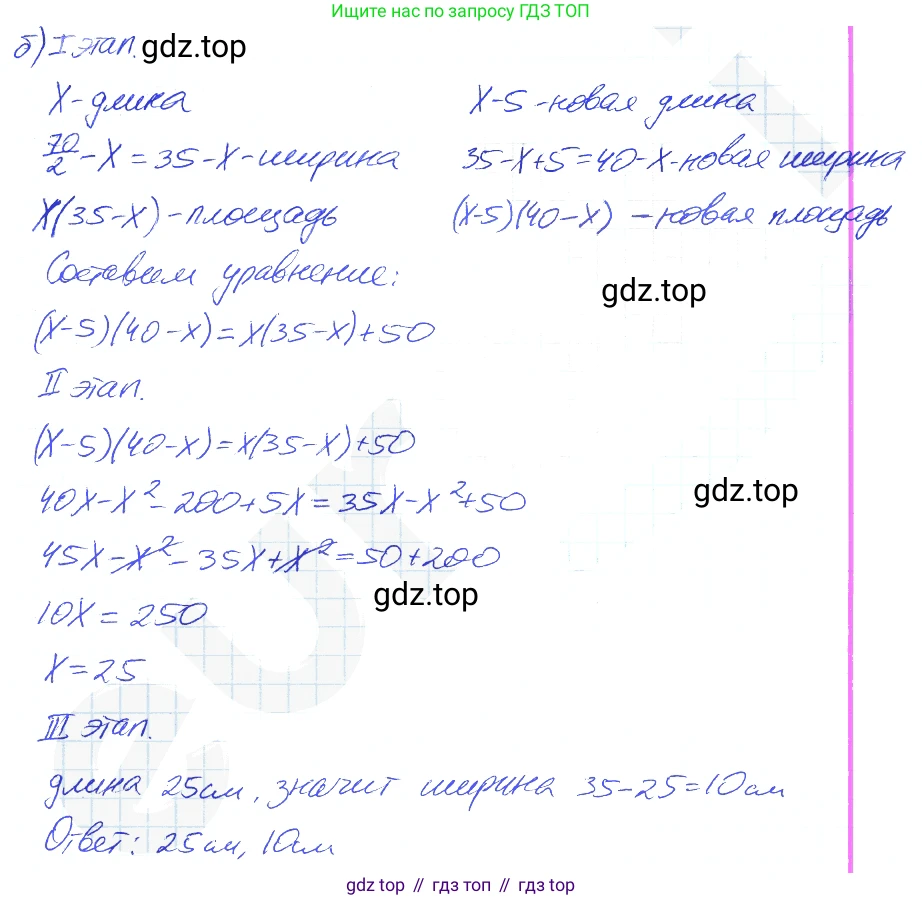 Ищите нас по запросу ГДЗ ТОП
б) I этап. gdz.top
X - длина
X-5 - новая длина
70/2 - X = 35-X - ширина
35-X+5=40-X - новая ширина
X(35-X) - площадь
(X-5)(40-X) - новая площадь
Составим уравнение:
gdz.top
(X-5)(40-X)=X(35-X)+50
II этап.
(X-5)(40-X)=X(35-X)+50
40X-X²-200+5X=35X-X²+50
gdz.top
45X-X²-35X+X²=50+200
10X=250
gdz.top
X=25
III этап.
длина 25см, значит ширина 35-25=10см
Ответ: 25см, 10см
gdz.top // гдз топ // гдз.top